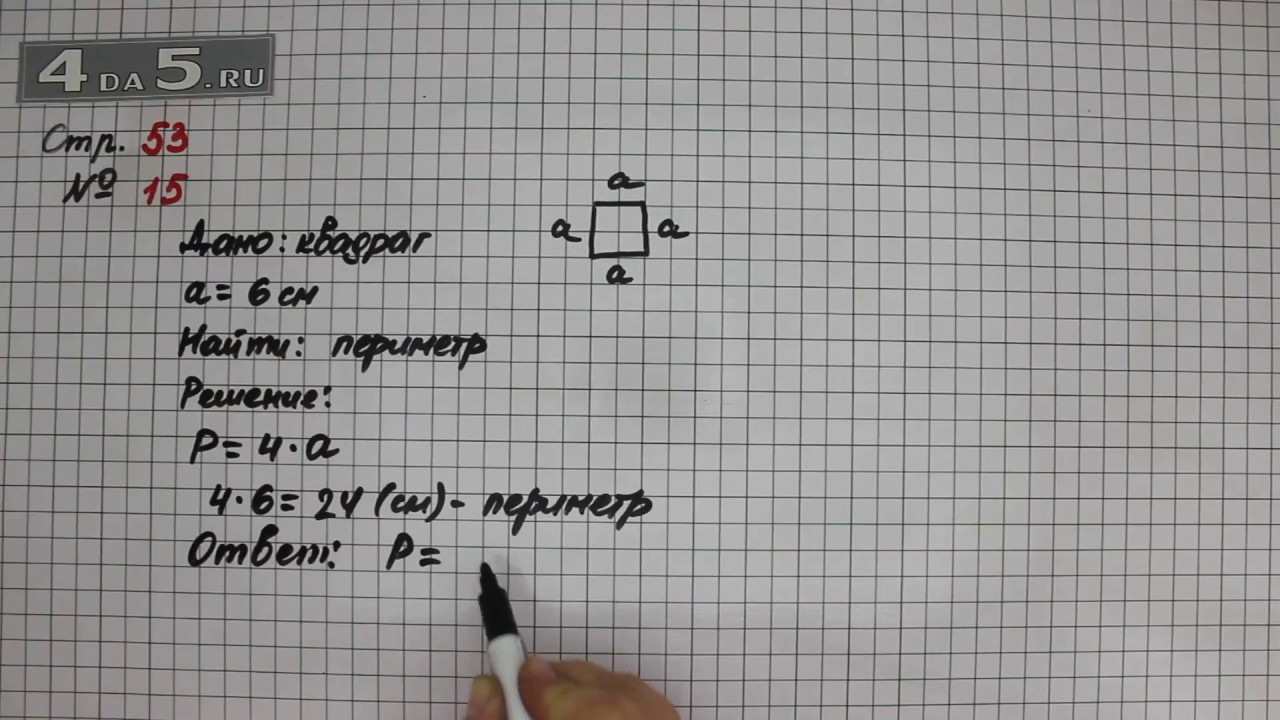 4DA5.RU
Стр. 53
№ 15
Дано: квадрат
a = 6 см
Найти: периметр
Решение:
P = 4 · a
4 · 6 = 24 (см) - периметр
Ответ: P =
a
a a
a